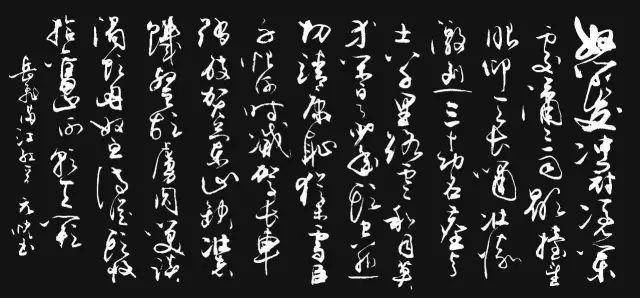 怒髮冲冠凭闌
處瀟瀟雨歇抬望
眼仰天長嘯壯懷
激烈三十功名塵与
土八千里路雲和月莫
等閒白了少年頭空悲
切靖康恥猶未雪臣
子恨何時滅駕長車
踏破賀蘭山缺壯志
饑餐胡虜肉笑談
渴飲匈奴血待從頭收
拾舊山河朝天闕
岳飛滿江紅